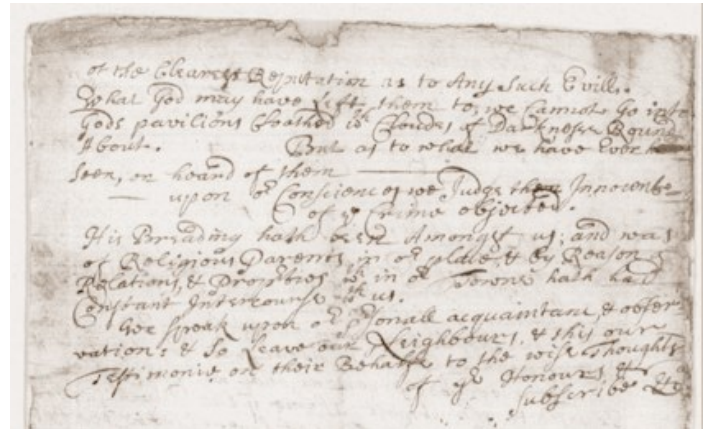 of the Clearest Reputation as to Any Such Evills.
What God may have Left them to, we Cannot Go into
Gods pavilions Cloathed wth Cloudes of Darknesse Round
About. But as to what we have Ever
seen, or heard of them
upon or Consciences we Judge them Innocent
of ye Crime objected.
His Breading hath been Amongst us; and was
of Religious Parents in or place, & by Reason
Relations, & Proprties wth in or Towne hath had
Constant Intercourse wth us.
We speak upon or psonall acquaintance, & obser-
vations: & So Leave our Neighbours, & this our
Testimonie on their Behalfe to the wise Thoughts
of yr Honours, &
subscribe &c